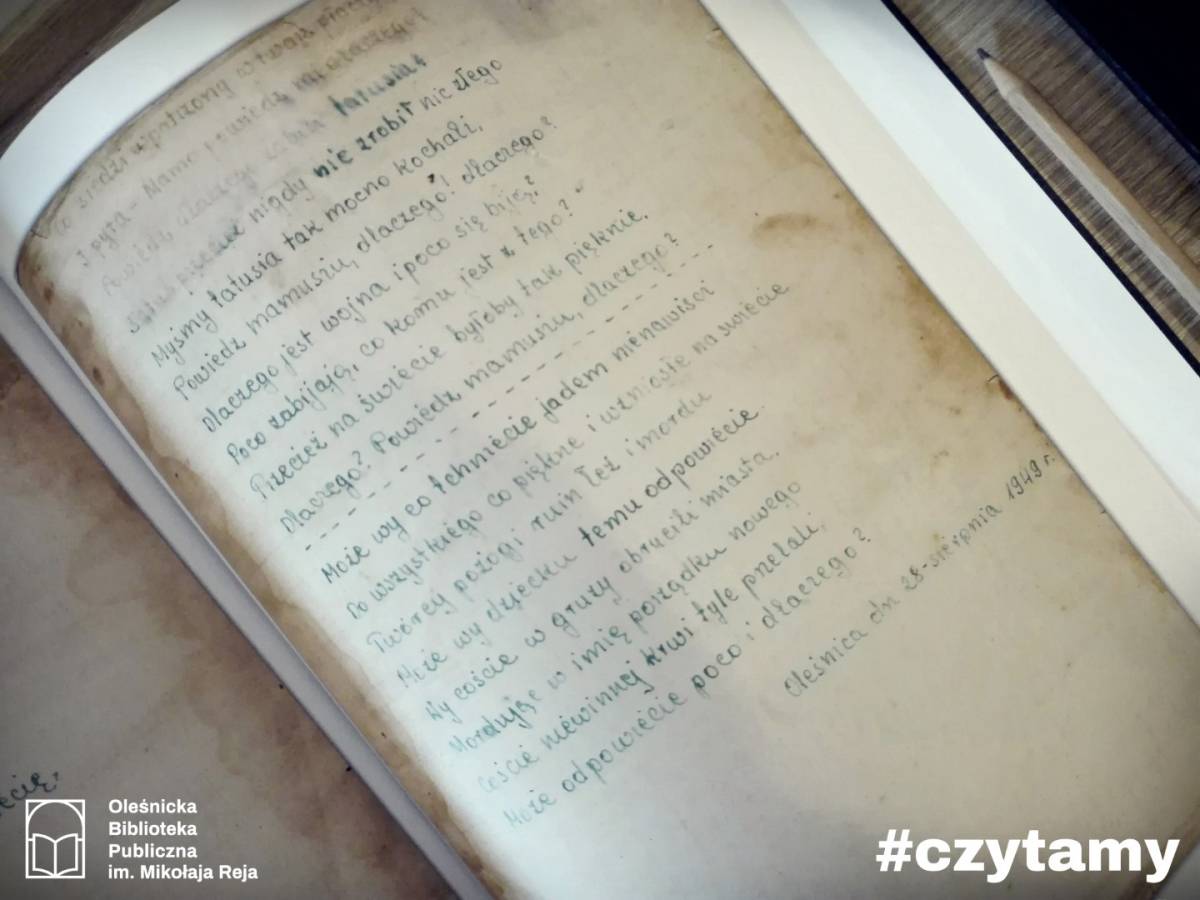 co siedzi wpatrzony w twoje
I pyta - Mamo powiedz mi dlaczego?
Powiedz dlaczego zabili tatusia?
Tatuś przecież nigdy nie zrobił nic złego
Myśmy tatusia tak mocno kochali,
Powiedz mamusiu, dlaczego! dlaczego?
Dlaczego jest wojna i poco się biją?
Poco zabijają, co komu jest z tego?
Przecież na świecie byłoby tak pięknie.
Dlaczego? Powiedz mamusiu, dlaczego?
- - - - - - - - - - - - - - - - - - - -
Może wy co tchniecie jadem nienawiści
Do wszystkiego co piękne i wzniosłe na świecie
Twórcy pożogi ruin łez i mordu
Może wy dziecku temu odpowiecie.
Wy coście w gruzy obrócili miasta,
Mordując w imię porządku nowego
Coście niewinnej krwi tyle przelali,
Może odpowiecie poco i dlaczego?
Oleśnica dn 28-sierpnia 1949 r.
Oleśnicka
Biblioteka
Publiczna
im. Mikołaja Reja
#czytamy